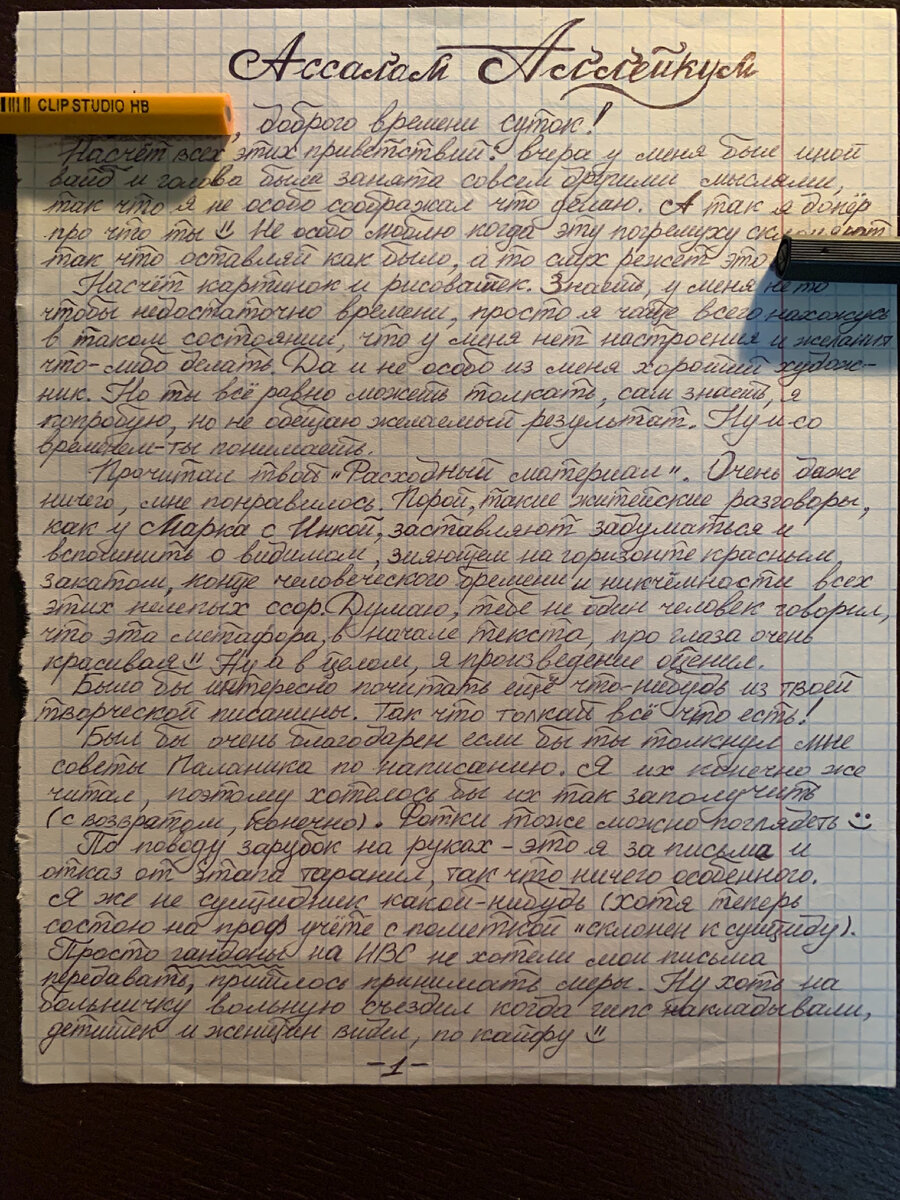 Ассалам Аллейкум
CLIP STUDIO HB
, доброго времени суток!
Насчёт всех этих приветствий: вчера у меня был иной
вайб и голова была занята совсем другими мыслями,
так что я не особо соображал что делаю. А так я допёр
про что ты :) Не особо люблю когда эту погремуху склоняют
так что оставляй как было, а то слух режет это
Насчёт картинок и рисовашек. Знаешь, у меня не то
чтобы недостаточно времени, просто я чаще всего нахожусь
в таком состоянии, что у меня нет настроения и желания
что-либо делать. Да и не особо из меня хороший худож-
ник. Но ты всё равно можешь толкать, сам знаешь, я
попробую, но не обещаю желаемый результат. Ну и со
временем-ты понимаешь.
Прочитал твой "Расходный материал". Очень даже
ничего, мне понравилось. Порой, такие житейские разговоры,
как у Марка с Инкой, заставляют задуматься и
вспомнить о видимом, зияющем на горизонте красным
закатом, конце человеческого бремени и никчёмности всех
этих нелепых ссор. Думаю, тебе не один человек говорил,
что эта метафора, в начале текста, про глаза очень
красивая :) Ну а в целом, я произведение оценил.
Было бы интересно почитать ещё что-нибудь из твоей
творческой писанины. Так что толкай всё что есть!
Был бы очень благодарен если бы ты толкнул мне
советы Паланика по написанию. Я их конечно же
читал, поэтому хотелось бы их так заполучить
(с возвратом, конечно). Фотки тоже можно поглядеть :)
По поводу зарубок на руках - это я за письма и
отказ от этапа таранил, так что ничего особенного.
Я же не суицидник какой-нибудь (хотя теперь
состою на проф учёте с пометкой "склонен к суициду).
Просто гандоны на ИВС не хотели мои письма
передавать, пришлось принимать меры. Ну хоть на
больничку вольную съездил когда гипс накладывали,
детишек и женщин видел, по кайфу :)
-1-